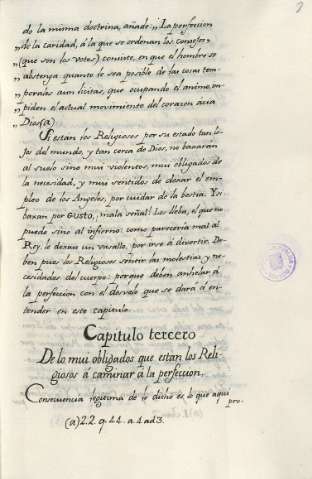 de la misma doctrina, añade: „La perfeccion
„de la caridad, á la que se ordenan los consejos
„(que son los votos) consiste, en que el hombre se
„abstenga quanto le sea posible de las cosas tem-
„porales aun licitas, que ocupando el animo, im-
„piden el actual movimiento del corazon acia
„Dios(a)
Si estan los Religiosos por su estado tan le-
jos del mundo, y tan cerca de Dios, no baxarán
al suelo sino mui violentos, mui obligados de
la necesidad, y mui sentidos de dexar el em-
pleo de los Angeles, por cuidar de la bestia. Y si
baxan por GUSTO, mala señal! Los lleba, el que no
puede sino al infierno: como pareceria mal al
Rey, le dexara un vasallo, por irse á divertir. De-
ben pues los Religiosos sentir las molestias y ne-
cesidades del cuerpo: porque deben anhelar á
la perfeccion con el desvelo que se dará á en-
tender en este capitulo.
Capitulo tercero
De lo mui obligados que estan los Reli-
giosos á caminar á la perfeccion.
Consecuencia legitima de lo dicho es lo que aqui
pro-
(a) 2.2. q. 44. a. 4 ad 3.